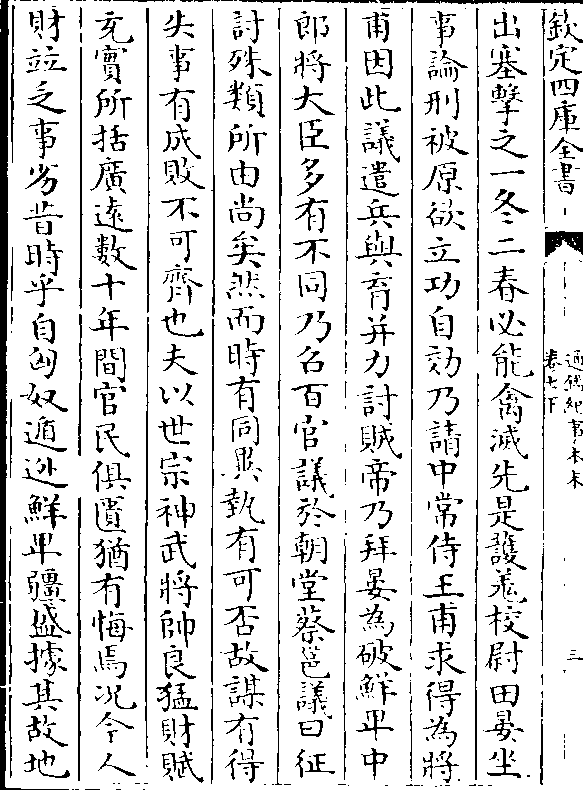 欽定四庫全書
通鑑紀事本末
卷七下
三
出塞擊之一冬二春必能禽滅先是護羌校尉田晏坐
事論刑被原欲立功自効乃請中常侍王甫求得為將
甫因此議遣兵與育并力討賊帝乃拜晏為破鮮卑中
郎將大臣多有不同乃召百官議於朝堂蔡邕議曰征
討殊類所由尚矣然而時有同異埶有可否故謀有得
失事有成敗不可齊也夫以世宗神武將帥良猛財賦
充實所括廣遠數十年間官民俱匱猶有悔焉况今人
財竝乏事劣昔時乎自匈奴遁逃鮮卑疆盛據其故地